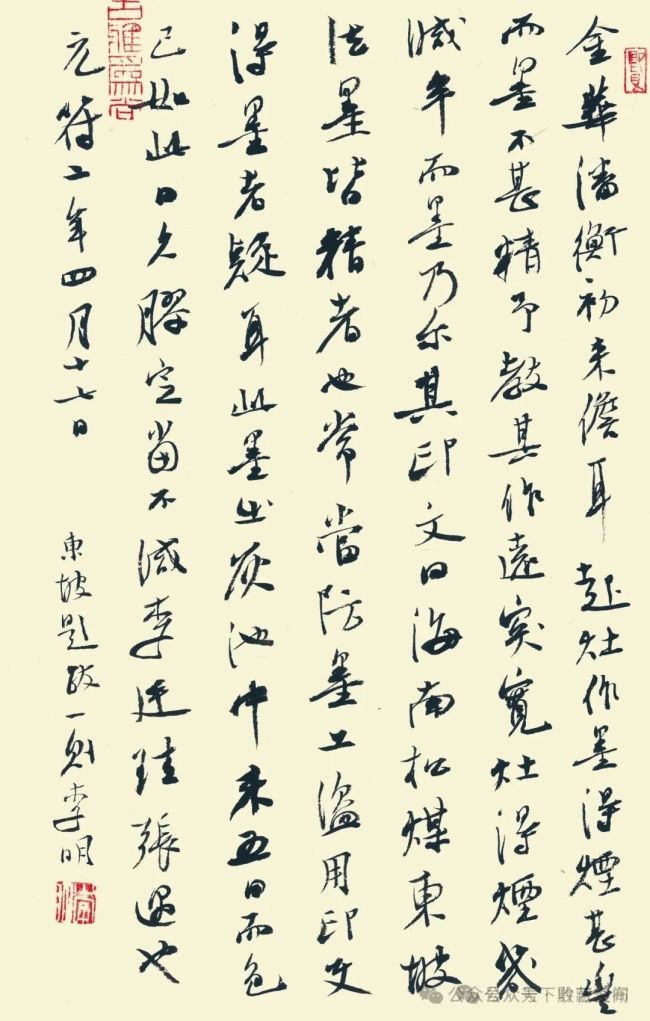 金華潘衡初来儋耳起灶作墨得煙甚豐
而墨不甚精予教其作遠突寬灶得煙幾
減年而墨乃尔其印文曰海南松煤東坡
法墨皆精者也常當防墨工盜用印使
得墨者疑耳此墨出灰池中未五日而色
已如此日久膠定當不減李廷珪張遇也
元符二年四月十七日
東坡題跋一則李明
公众号